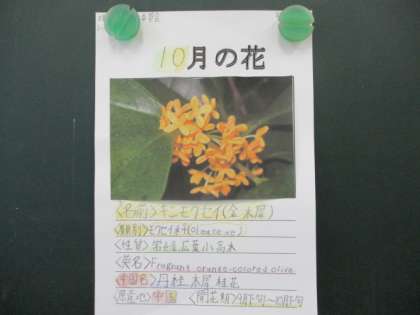 10月の花
<名前>キンモクセイ(金木犀)
<類別>モクセイ科(Oleaceae)
<性状>常緑広葉小高木
<英名>Fragrant orange-colored olive
<中国名>丹桂 木犀 桂花
<原産地>中国 <開花期>9月下旬〜10月下旬